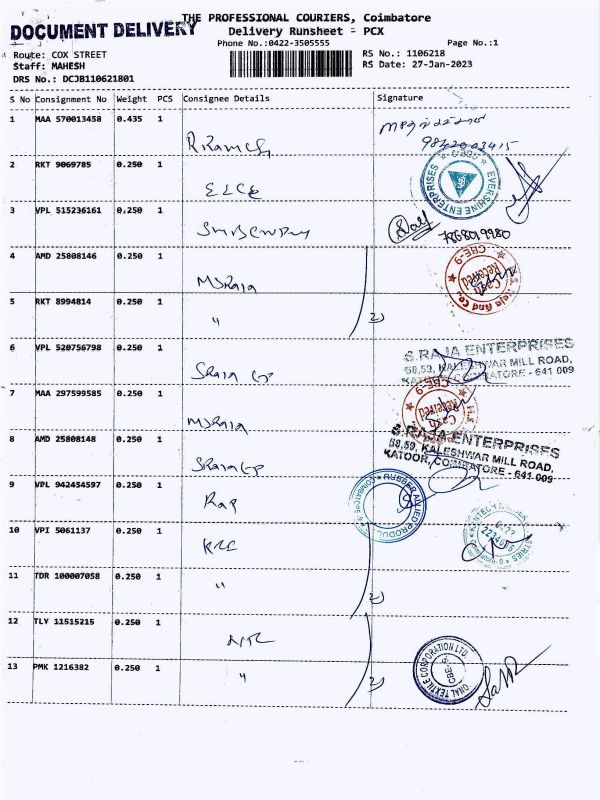 DOCUMENT DELIVERY
THE PROFESSIONAL COURIERS, Coimbatore
Delivery Runsheet - PCX
Phone No.:0422-3505555
Page No.:1
Route: COX STREET
RS No.: 1106218
Staff: MAHESH
RS Date: 27-Jan-2023
DRS No.: DCJB110621801
S No Consignment No Weight PCS Consignee Details Signature
1 MAA 570013458 0.435 1
9842003415
2 RKT 9069785 0.250 1
EVERSHINE ENTERPRISES CBE-9
3 VPL 515236161 0.250 1
7868019980
4 AMD 25808146 0.250 1 MSRaja
Cash Received CBE-9
5 RKT 8994814 0.250 1 "
2)
6 VPL 520756798 0.250 1 SRaja
S.RAJA ENTERPRISES
58,59, KALESHWAR MILL ROAD,
KATOOR, COIMBATORE - 641 009
7 MAA 297599585 0.250 1 MSRaja
Cash Received CBE-9
8 AMD 25808148 0.250 1 SRaja
S.RAJA ENTERPRISES
58,59, KALESHWAR MILL ROAD,
KATOOR, COIMBATORE - 641 009
9 VPL 942454597 0.250 1
RUBBER ALLIED PRODUCTS
10 VPI 5061137 0.250 1
11 TDR 100007058 0.250 1 "
2)
12 TLV 11515215 0.250 1 NTC
ONAL TEXTILE CORPORATION LTD. CBE-9
13 PMK 1216382 0.250 1 "
2)